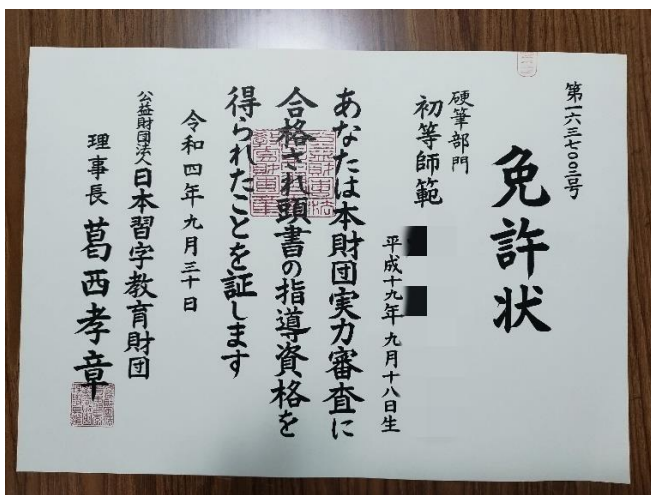 第一六三七〇〇三号
免許状
硬筆部門
初等師範
平成十九年 九月十八日生
あなたは本財団実力審査に
合格され頭書の指導資格を
得られたことを証します
令和四年九月三十日
公益財団法人 日本習字教育財団
理事長 葛西孝章